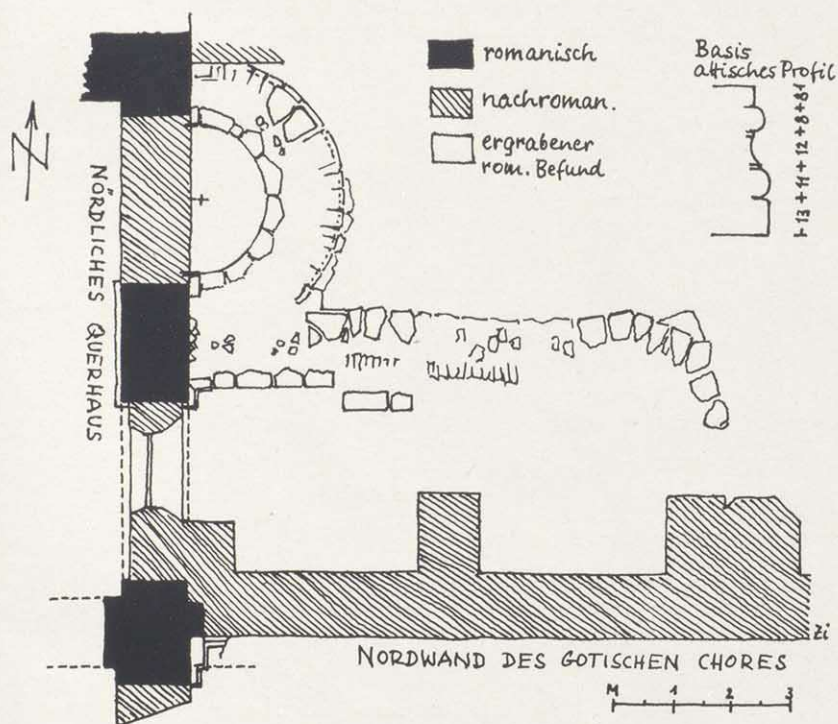 romanisch
nachroman.
ergrabener
rom. Befund
Basis
attisches Profil
13 + 11 + 12 + 8 + 8
N
NÖRDLICHES QUERHAUS
Zi
NORDWAND DES GOTISCHEN CHORES
M 1 2 3